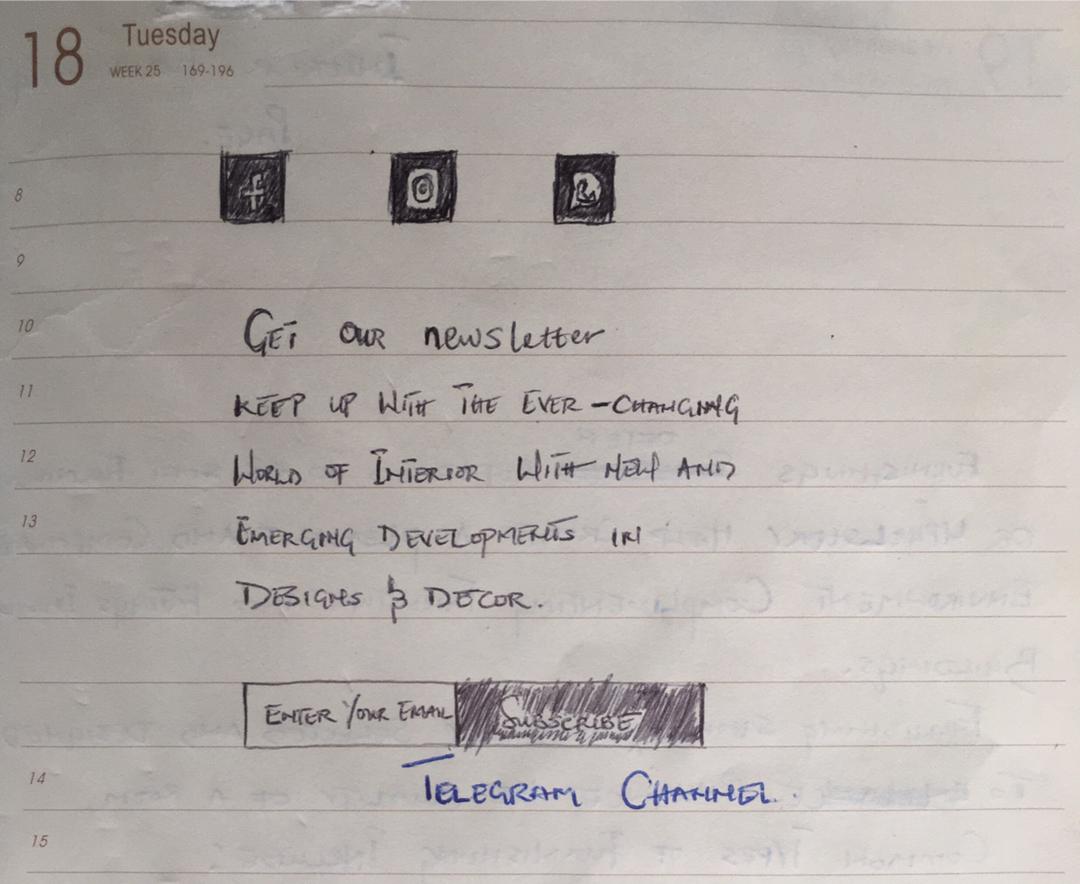 18 Tuesday
WEEK 25 169-196
8
f
9
10 GET OUR newsletter
11 KEEP UP WITH THE EVER-CHANGING
12 WORLD OF INTERIOR WITH NEW AND
13 EMERGING DEVELOPMENTS IN
DESIGNS & DECOR.
ENTER YOUR EMAIL SUBSCRIBE
14 TELEGRAM CHANNEL.
15